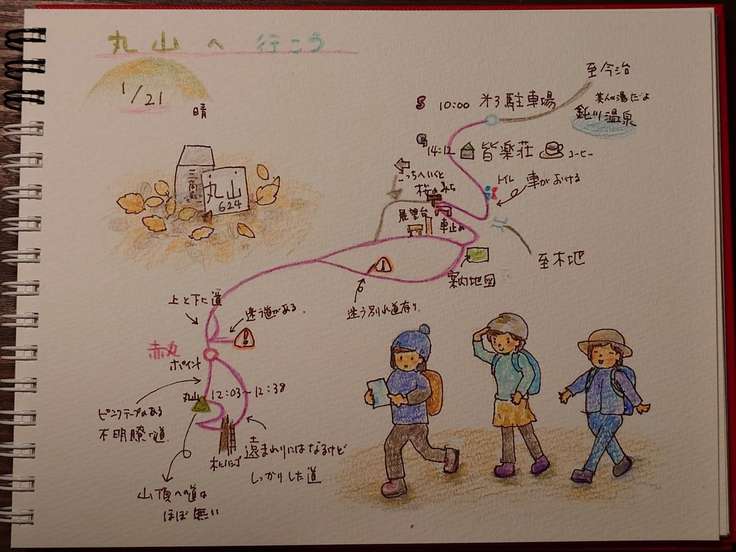 丸山へ 行こう
1/21
晴
三角点
丸山
624
至今治
S 10:00 第3駐車場
美人の湯だよ
鈍川温泉
G 14:12 皆楽荘 コーヒー
こっちへいくと
桜のみち
トイレ
車がおける
展望台
車止め
至木地
案内地図
迷う別れ道有り
上と下に道
迷う道がある
赤丸
ポイント
丸山 12:03〜12:38
ピンクテープのある
不明瞭な道
木ハシゴ
遠まわりにはなるけど
しっかりした道
山頂への道は
ほぼ無い